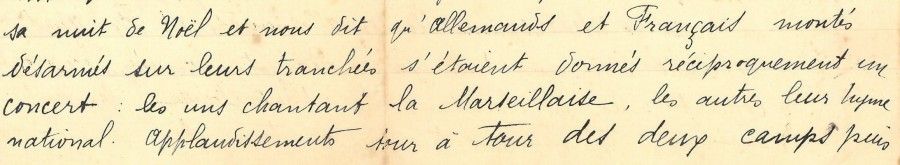 sa nuit de Noël et nous dit qu'Allemands et Français montés
désarmés sur leurs tranchées s'étaient donnés réciproquement un
concert : les uns chantant la Marseillaise, les autres leur hyme
national. Applaudissements tour à tour des deux camps puis